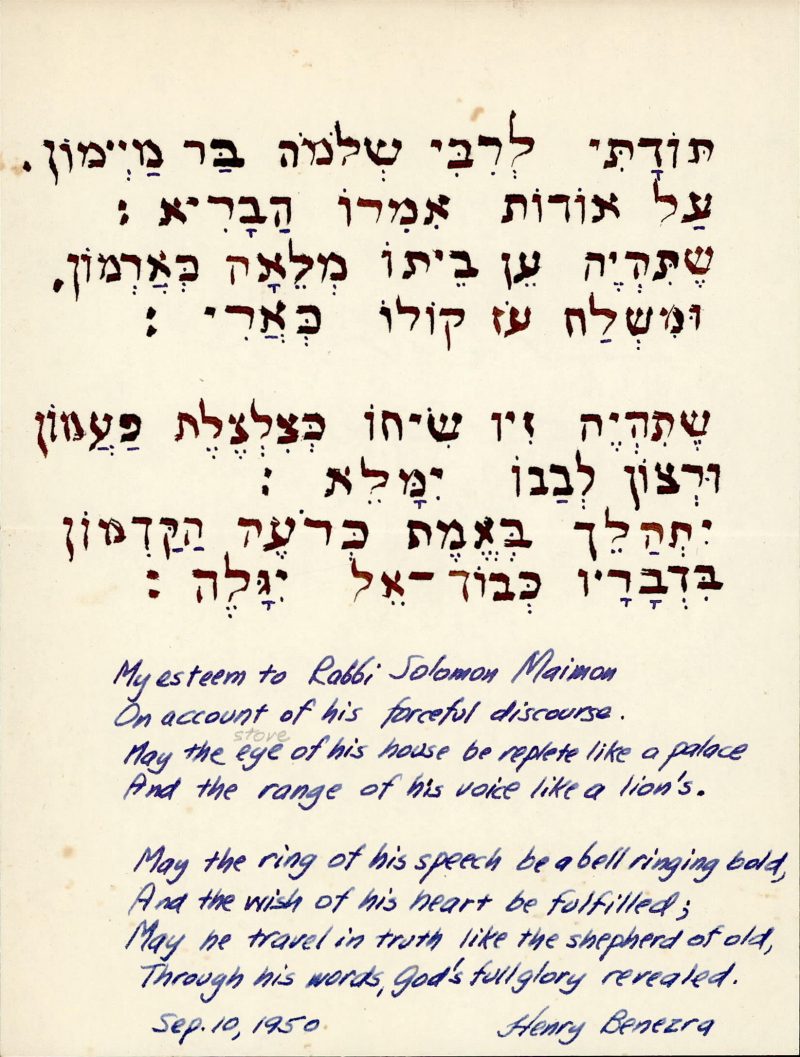 תּוֹדָתִּי לְרִבִּי שְׁלֹמֹה בַּר מַיְימוֹן.
עַל אוֹדוֹת אִמְרוֹ הַבָּרִיא :
שֶׁתִּהְיֶה עֵן בֵּיתוֹ מְלֵאָה כְּאַרְמוֹן,
וּמִשְׁלַח עֹז קוֹלוֹ כְּאֲרִי :
שֶׁתִּהְיֶה זִיו שִׂיחוֹ כְּצִלְצֶלֶת פַּעֲמוֹן
וּרְצוֹן לְבָבוֹ יִמָּלֵא :
יִתְהַלֵּךְ בֶּאֱמֶת כְּרֹעֶה הַקַּדְמוֹן
בִּדְבָרָיו כְּבוֹד־אֵל יִגָּלֶה :
My esteem to Rabbi Solomon Maimon
On account of his forceful discourse.
stove
May the eye of his house be replete like a palace
And the range of his voice like a lion's.
May the ring of his speech be a bell ringing bold,
And the wish of his heart be fulfilled;
May he travel in truth like the shepherd of old,
Through his words, God's full glory revealed.
Sep. 10, 1950 Henry Benezra